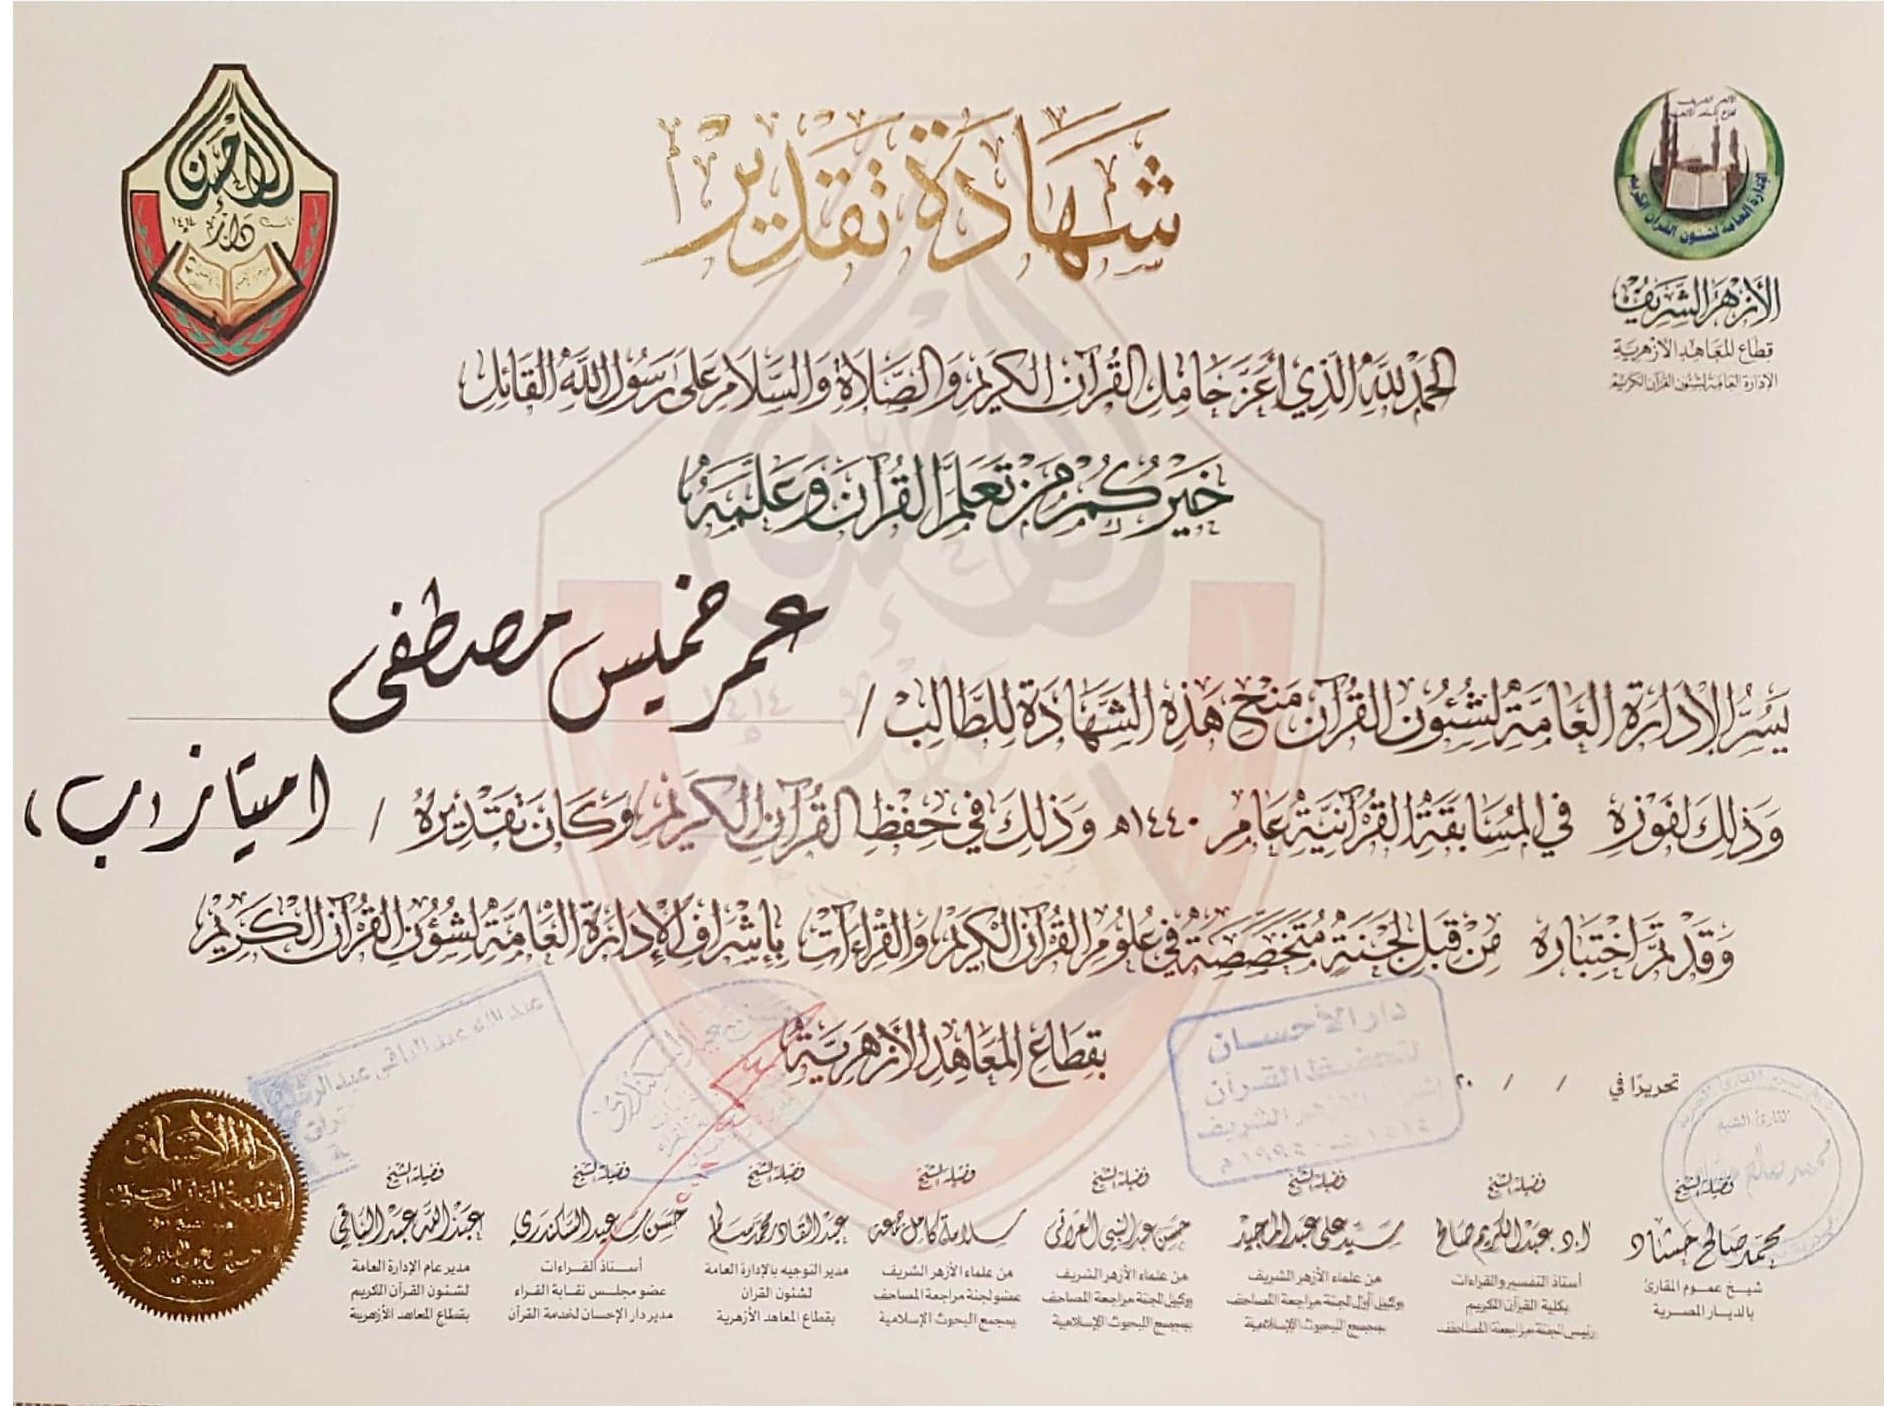 الأزهر الشريف
قطاع المعاهد الأزهرية
الإدارة العامة لشئون القرآن الكريم
الإدارة العامة لشئون القرآن الكريم
الإحسان
دار
١٤١٤
شهادة تقدير
الحمد لله الذي أعز حامل القرآن الكريم والصلاة والسلام على رسول الله القائل
خيركم من تعلم القرآن وعلمه
يسر الإدارة العامة لشئون القرآن منح هذه الشهادة للطالب / عمر خميس مصطفى
وذلك لفوزه في المسابقة القرآنية عام ١٤٤٠هـ وذلك في حفظ القرآن الكريم وكان تقديره / امتياز
وقد تم اختباره من قبل لجنة متخصصة في علوم القرآن الكريم والقراءات بإشراف الإدارة العامة لشؤن القرآن الكريم
بقطاع المعاهد الأزهرية
تحريرًا في / / ٢٠
دار الإحسان
لتحفيظ القرآن
الأزهر الشريف
١٤١٤ هـ - ١٩٩٤ م
عبد الله عبد الباقي عبد
دار الإحسان
فضيلة الشيخ
محمد صالح حشاد
شيخ عموم المقارئ
بالديار المصرية
فضيلة الشيخ
ا.د. عبد الكريم صالح
أستاذ التفسير والقراءات
بكلية القرآن الكريم
رئيس لجنة مراجعة المصاحف
فضيلة الشيخ
سيد على عبد المجيد
من علماء الأزهر الشريف
وكيل أول لجنة مراجعة المصاحف
بمجمع البحوث الإسلامية
فضيلة الشيخ
حسن عبد النبي العراقي
من علماء الأزهر الشريف
ووكيل لجنة مراجعة المصاحف
بمجمع البحوث الإسلامية
فضيلة الشيخ
سلامة كامل جمعة
من علماء الأزهر الشريف
عضو لجنة مراجعة المصاحف
بمجمع البحوث الإسلامية
فضيلة الشيخ
عبد القادر محمد سالم
مدير التوجيه بالإدارة العامة
لشئون القران
بقطاع المعاهد الأزهرية
فضيلة الشيخ
حسن سعيد السكندري
أستاذ القراءات
عضو مجلس نقابة القراء
مدير دار الإحسان لخدمة القرآن
فضيلة الشيخ
عبد الله عبد الباقي
مدير عام الإدارة العامة
لشئون القرآن الكريم
بقطاع المعاهد الأزهرية